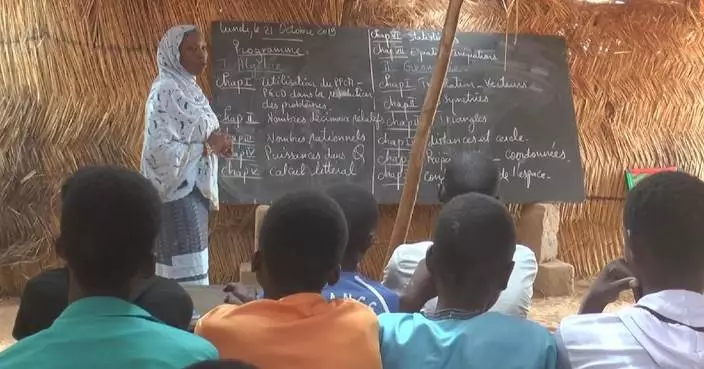 Lundi, le 21 Octobre 2019
Programme
I. Algèbre
Chap I Utilisation du PPCM -
PGCD dans la résolution
des problèmes.
Chap II Nombres décimaux relatifs
Chap III Nombres rationnels
Chap IV Puissances dans Q
Chap V Calcul littéral
Chap VI
Chap VII
II.
chap I Translation - Vecteurs
chap Symétries
chap Triangles
chap distances et cercle
chap coordonnées.
chap de l'espace.